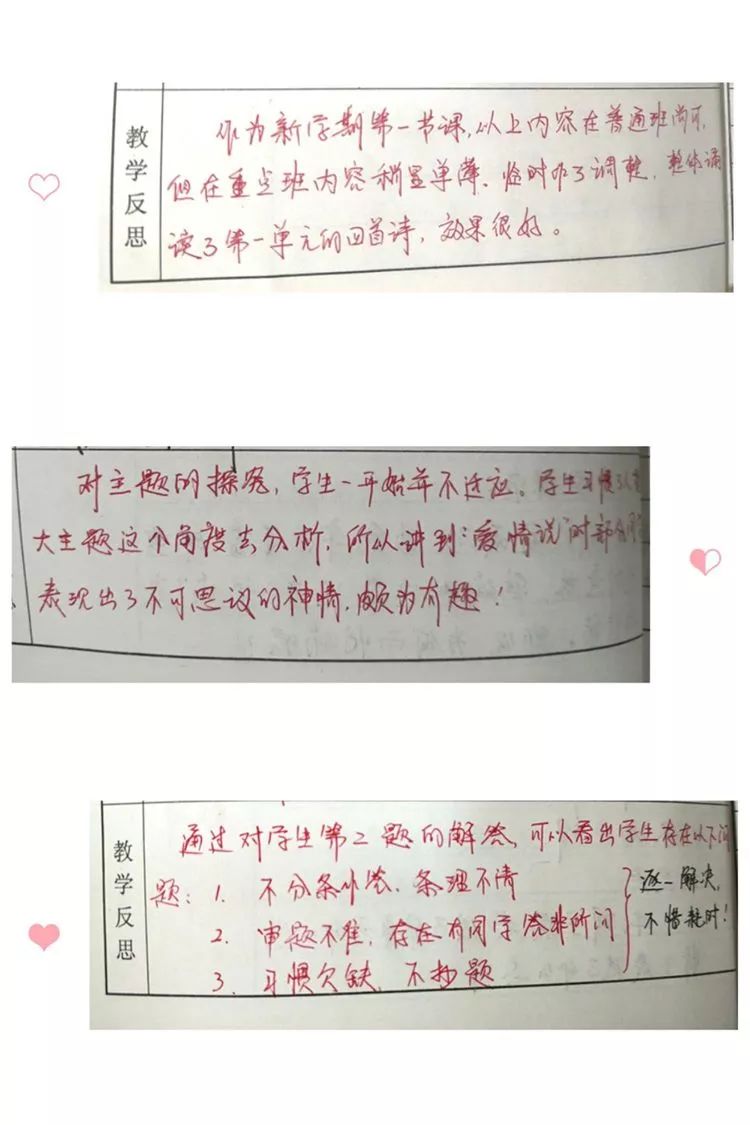 教学反思
作为新学期第一节课,以上内容在普通班尚可,
但在重点班内容稍显单薄、临时作了调整,整体诵
读了第一单元的四首诗,效果很好。
对主题的探究,学生一开始并不适应。学生习惯了从
大主题这个角度去分析,所以讲到“爱情说”时部分同
表现出了不可思议的神情,颇为有趣!
教学反思
通过对学生第2题的解答,可以看出学生存在以下问
题:1、不分条作答、条理不清
2、审题不准,存在有同学答非所问
3、习惯欠缺,不抄题
逐一解决,
不惜耗时!